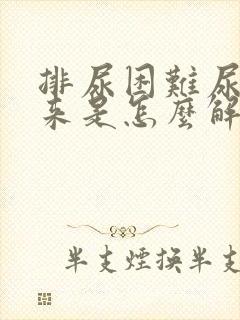 排尿困難尿
來是怎麼解
半支煙換半支